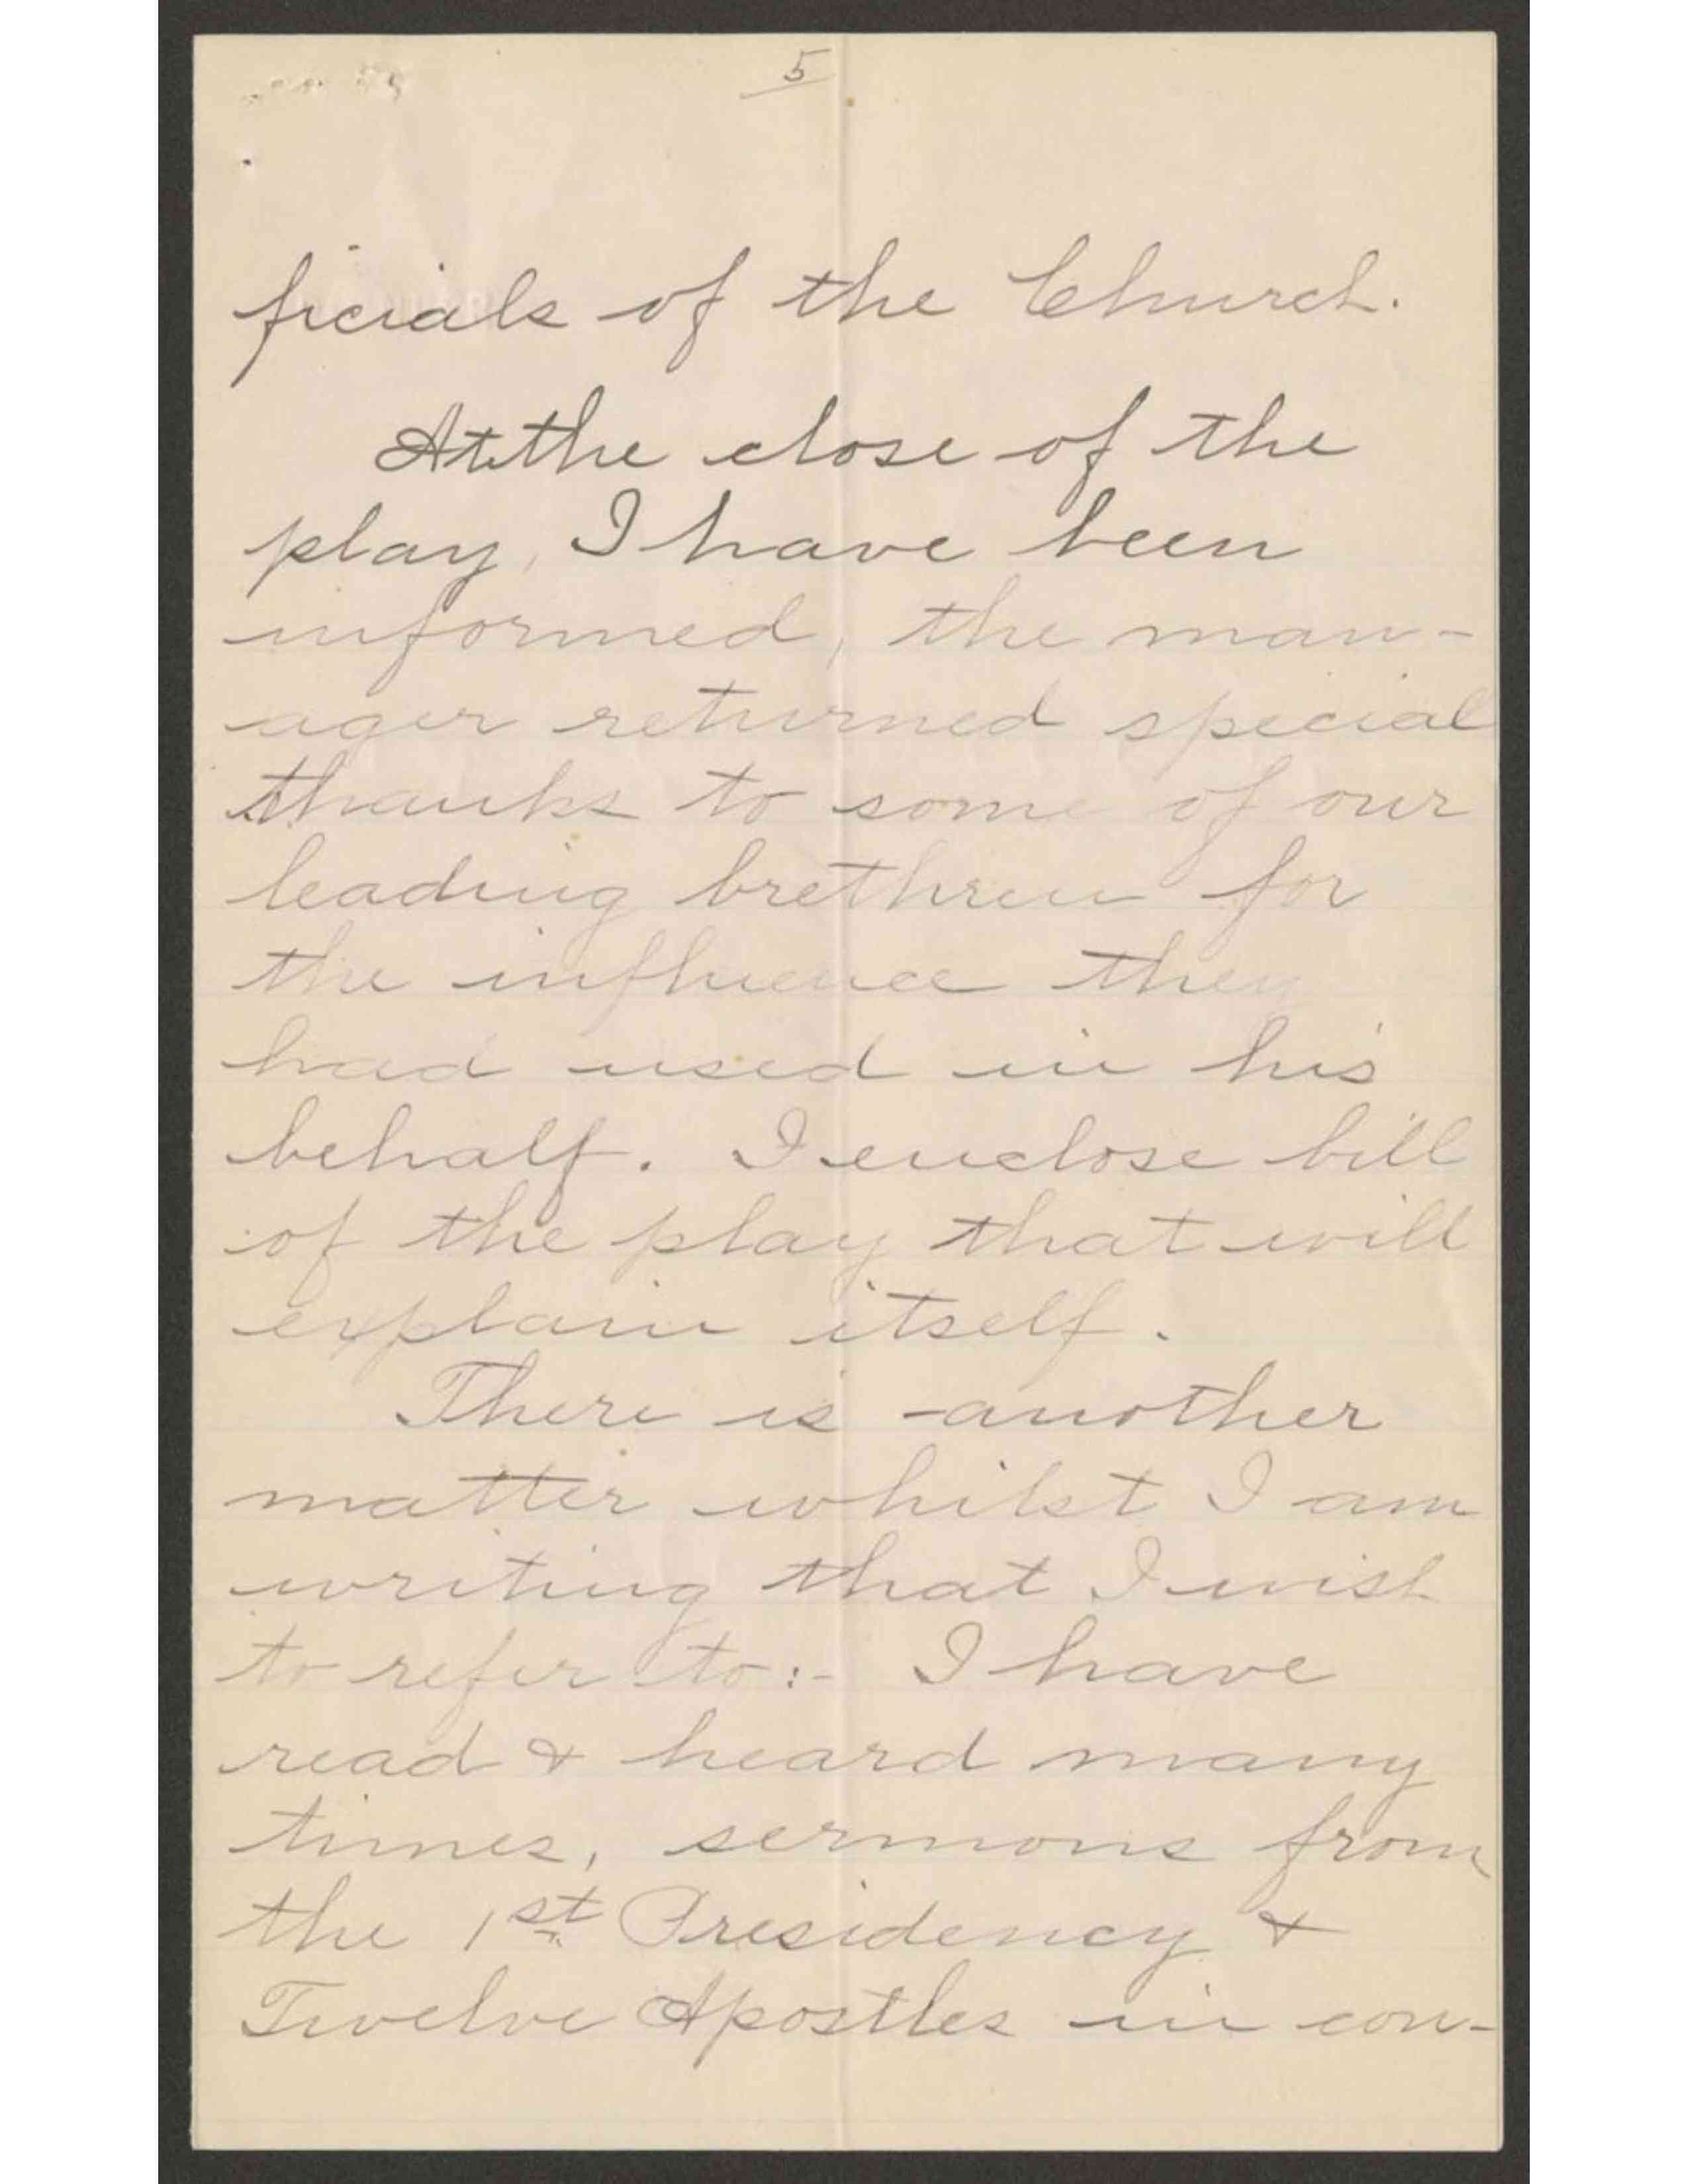 5
ficials of the Church.
At the close of the
play, I have been
informed, the man-
ager returned special
thanks to some of our
leading brethren for
the influence they
had used in his
behalf. I enclose bill
of the play that will
explain itself.
There is another
matter whilst I am
writing that I wish
to refer to:- I have
read & heard many
times, sermons from
the 1st Presidency &
Twelve Apostles in con-